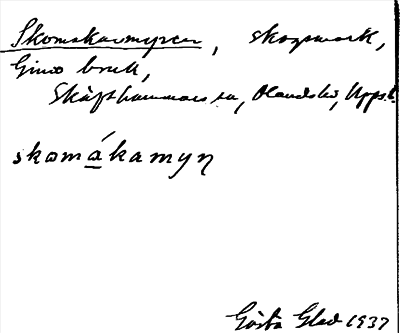 Skomakarmyren, skogsmark,
Gimo bruk,
Skäfthammars sn, Olands hd, Upps. l.
skomákamyn
Gösta Glad 1937